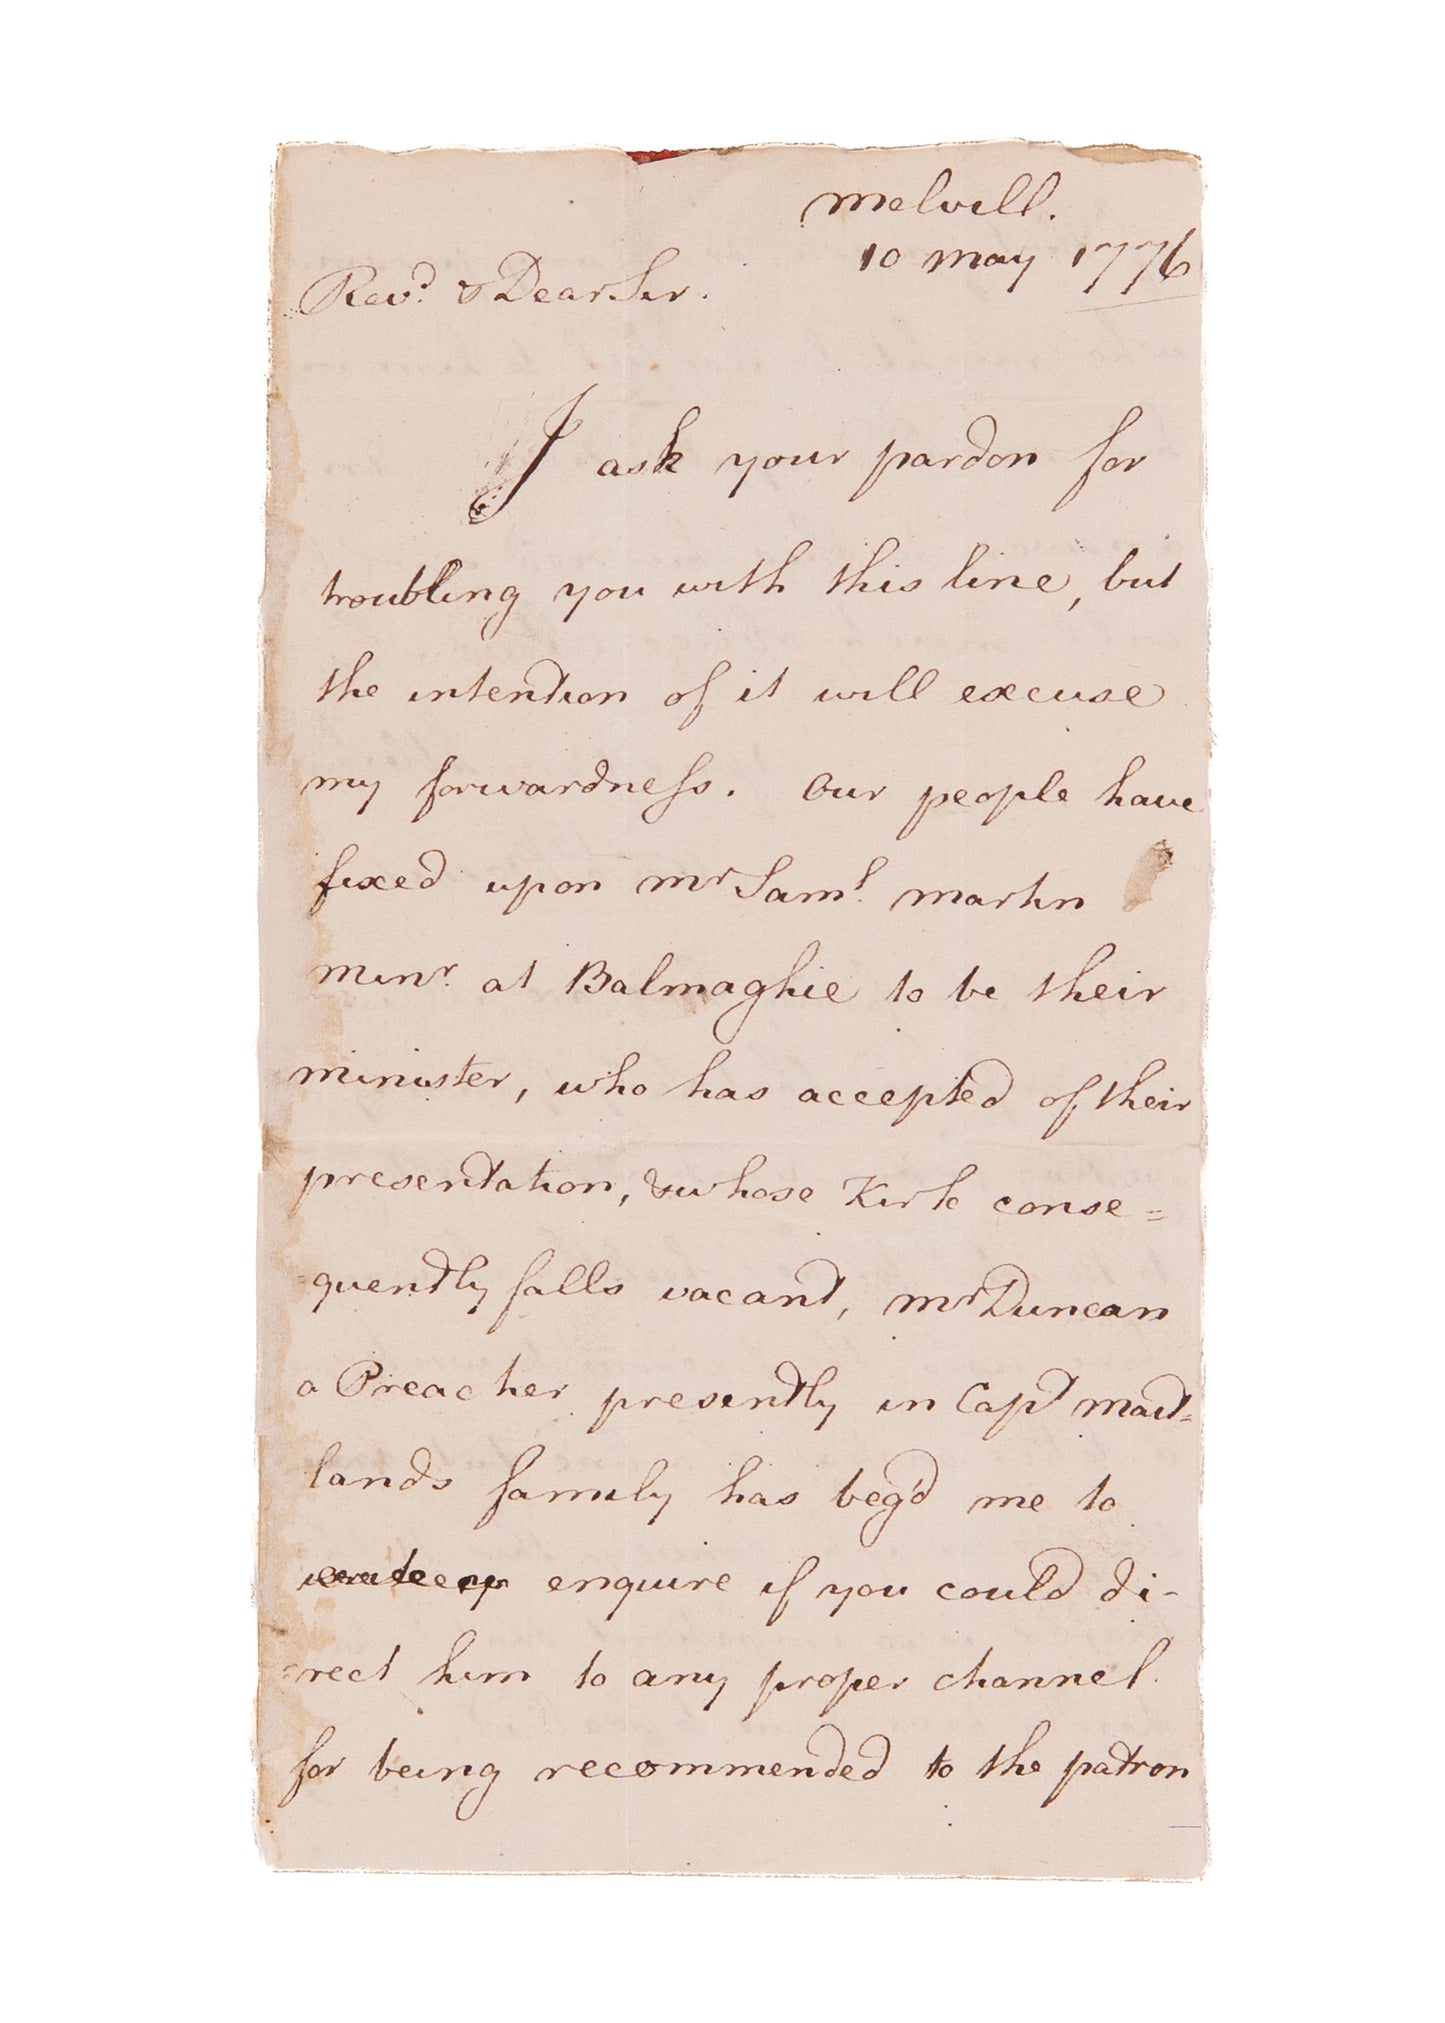 Melvill.
10 May 1776
Revd. & Dear Sir.
I ask your pardon for
troubling you with this line, but
the intention of it will excuse
my forwardness. Our people have
fixed upon Mr Saml. Martin
Minr. at Balmaghie to be their
minister, who has accepted of their
presentation, & whose Kirk conse=
=quently falls vacant, Mr Duncan
a Preacher presently in Capt Mait=
lands family has beg'd me to
enquire if you could di-
=rect him to any proper channel
for being recommended to the patron